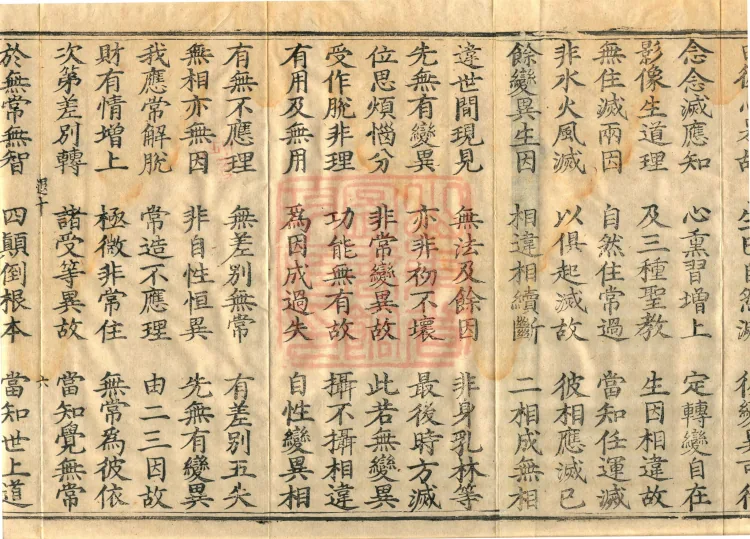 念念滅應知 心熏習增上 定轉變自在
影像生道理 及三種聖教 生因相違故
無住滅兩因 自然住常過 當知任運滅
非水火風滅 以俱起滅故 彼相應滅已
餘變異生因 相違相續斷 二相成無相
違世間現見 無法及餘因 非身乳林等
先無有變異 亦非初不壞 最後時方滅
位思煩惱分 非常變異故 此若無變異
受作脫非理 功能無有故 攝不攝相違
有用及無用 爲因成過失 自性變異相
有無不應理 無差別無常 有差別五失
無相亦無因 非自性恒異 先無有變異
我應常解脫 常造不應理 由二三因故
財有情增上 極微非常住 無常爲彼依
次第差別轉 諸受等異故 當知覺無常
遐十 六
於無常無智 四顛倒根本 當知世上道